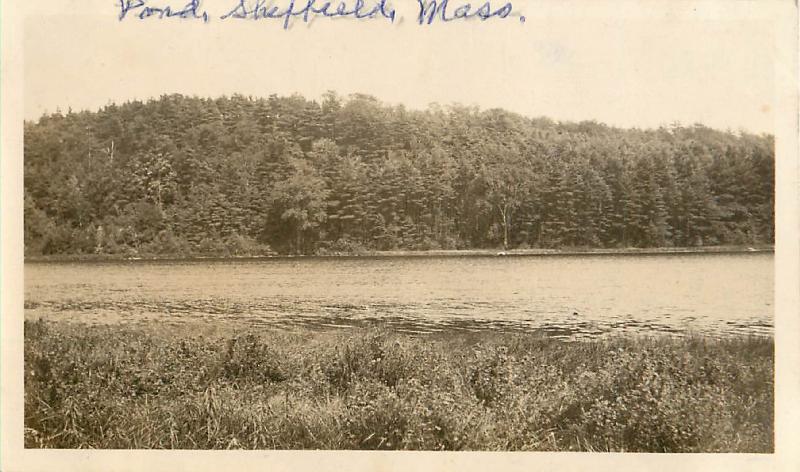 Pond, Sheffield, Mass.